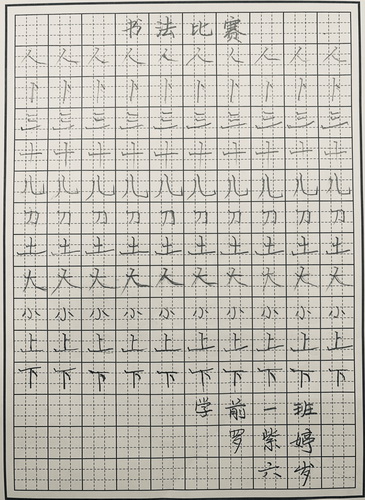 书法比赛
人人人人人人人人人人
卜卜卜卜卜卜卜卜卜卜
三三三三三三三三三三
十十十十十十十十十十
儿儿儿儿儿儿儿儿儿儿
刀刀刀刀刀刀刀刀刀刀
土土土土土土土土土土
大大大大大大大大大大
小小小小小小小小小小
上上上上上上上上上上
下下下下下下下下下下
学前一班
罗紫婷
六岁